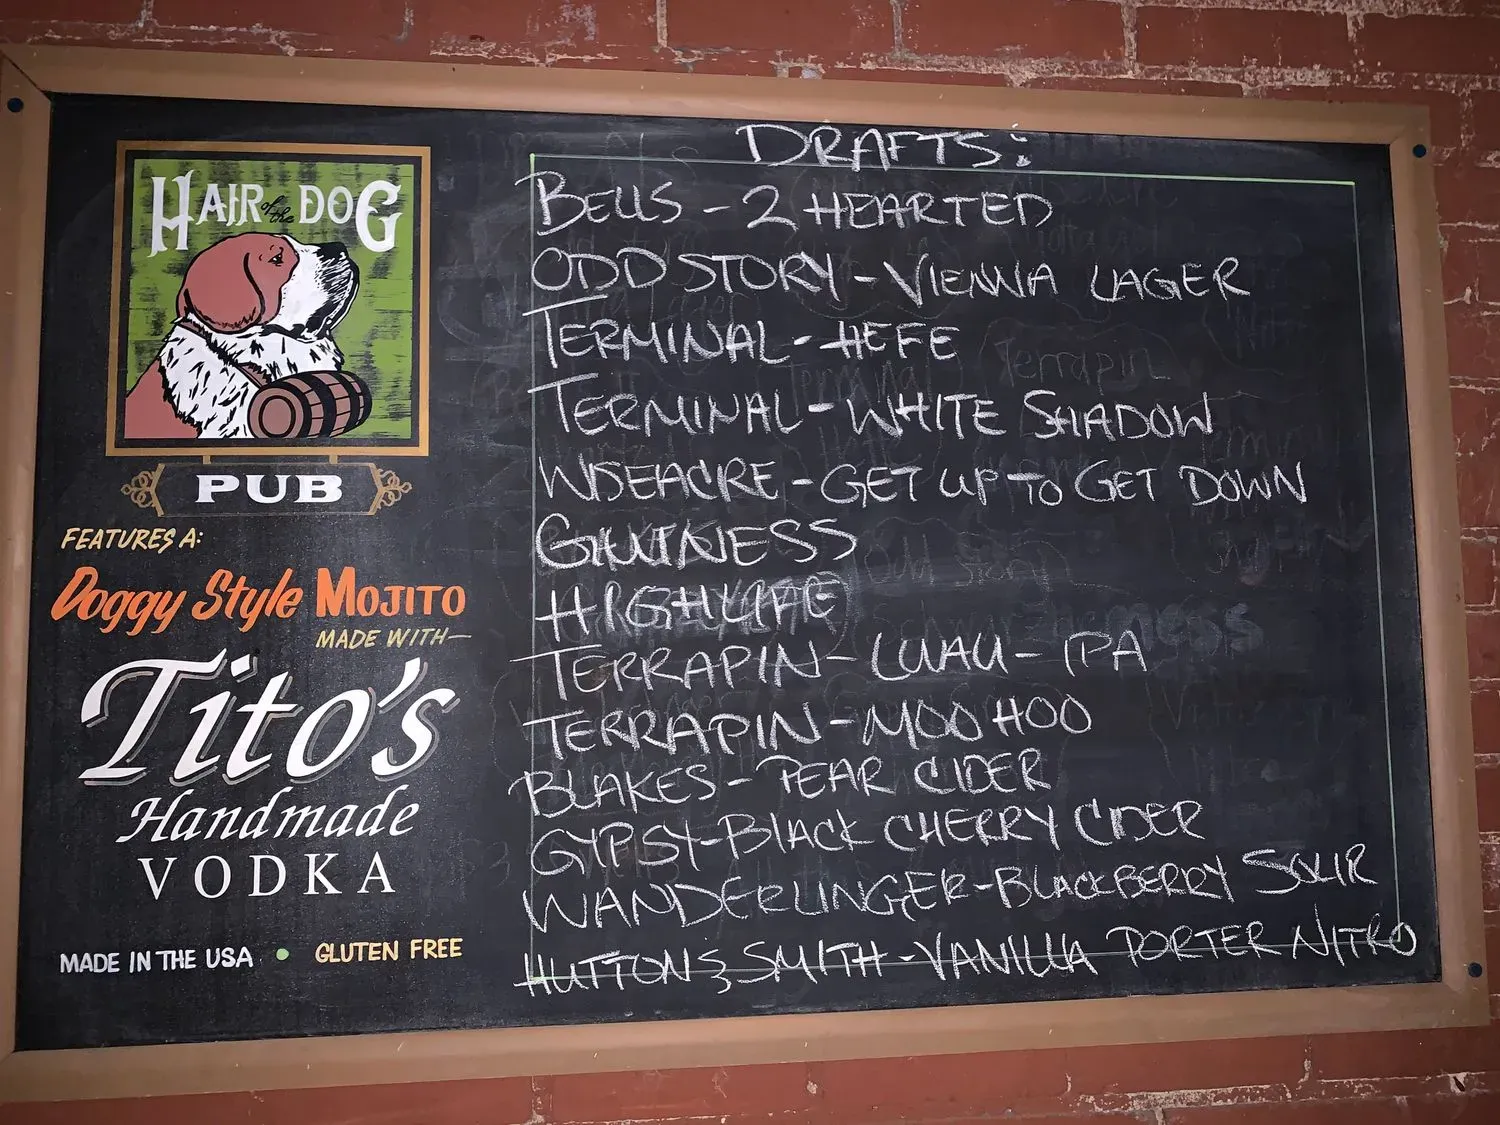 HAIR of the DOG
PUB
FEATURES A:
Doggy Style MOJITO
MADE WITH—
Tito's
Handmade
VODKA
MADE IN THE USA • GLUTEN FREE
DRAFTS:
BELLS - 2 HEARTED
ODD STORY - VIENNA LAGER
TERMINAL - HEFE
TERMINAL - WHITE SHADOW
WISEACRE - GET UP TO GET DOWN
GUINNESS
HIGHLIFE
TERRAPIN - LUAU - IPA
TERRAPIN - MOO HOO
BLAKES - PEAR CIDER
GYPSY - BLACK CHERRY CIDER
WANDERLINGER - BLACKBERRY SOUR
HUTTON & SMITH - VANILLA PORTER NITRO